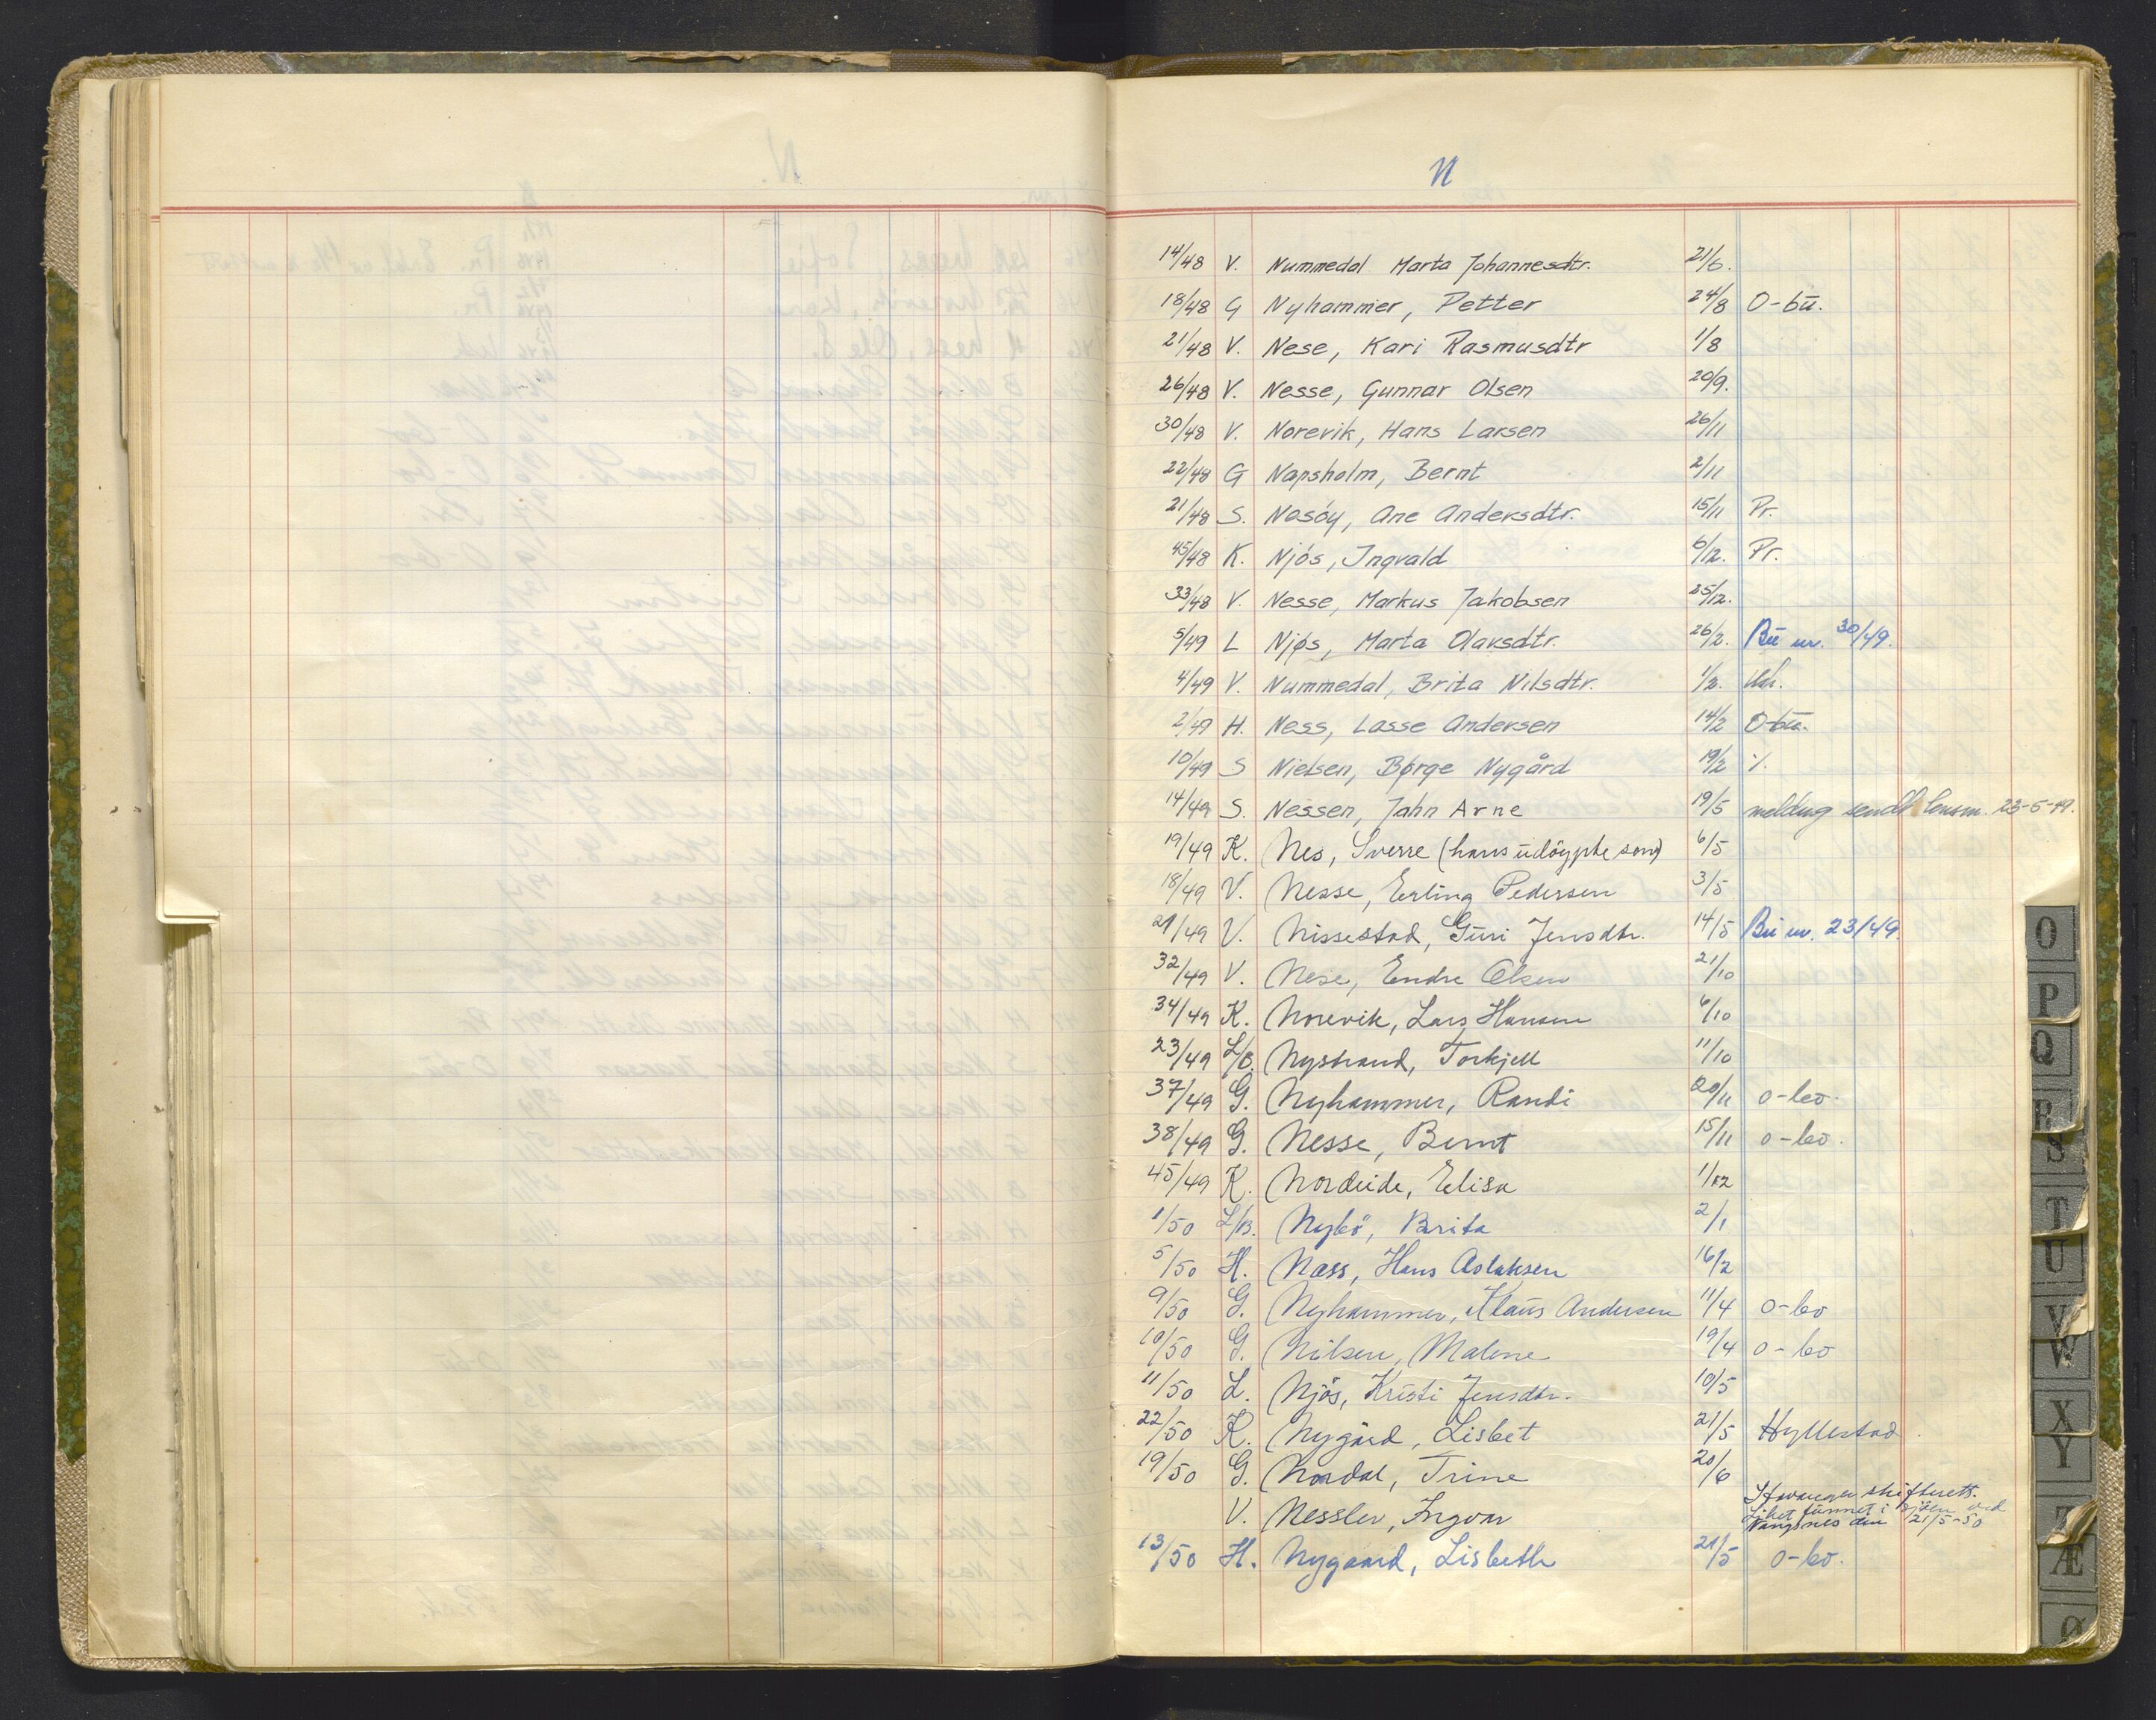 N
14/48 V. Nummedal Marta Johannesdtr. 21/6.
18/48 G Nyhammer, Petter 24/8 O-bu.
21/48 V. Nese, Kari Rasmusdtr 1/8
26/48 V. Nesse, Gunnar Olsen 20/9.
30/48 V. Norevik, Hans Larsen 26/11
22/48 G Napsholm, Bernt 2/11
21/48 S. Nosöy, Ane Andersdtr. 15/11 Pr.
45/48 K. Njös, Ingvald 6/12. Pr.
33/48 V. Nesse, Markus Jakobsen 25/12.
5/49 L Njøs, Marta Olavsdtr. 26/2. Bu nr. 30/49.
4/49 V. Nummedal, Brita Nilsdtr. 1/2.
2/49 H. Ness, Lasse Andersen 14/2 O-bu.
10/49 S Nielsen, Børge Nygård 19/2 ./.
14/49 S. Nessen, Jahn Arne 19/5 melding sendt lensm. 23-5-49.
19/49 K. Nes, Sverre (hans udöypte son) 6/5
18/49 V. Nesse, Erling Pedersen 3/5
21/49 V. Nissestad, Guri Jensdtr. 14/5 Bu nr. 23/49.
32/49 V. Nese, Endre Olsen 21/10
34/49 K. Norevik, Lars Hansen 6/10
23/49 L/B. Nystrand, Torkjell 11/10
37/49 G. Nyhammer, Randi 20/11 o-bo.
38/49 G. Nesse, Bernt 15/11 o-bo.
45/49 K. Nordeide, Elisa 1/12
1/50 L/B. Nybö, Brita 2/1
5/50 H. Næss, Hans Aslaksen 16/2
9/50 G. Nyhammer, Klaus Andersen 11/4 o-bo
10/50 G. Nilsen, Malene 19/4 o-bo
11/50 L. Njös, Kristi Jensdtr. 10/5
22/50 K. Nygård, Lisbet 21/5 Hyllestad.
19/50 G. Nordal, Trine 20/6
V. Nessler, Ingvar Stavanger skifterett.
Liket funnet i sjöen ved
Vangsnes den 21/5-50
13/50 H. Nygaard, Lisbeth 21/5 o-bo.
O
P
Q
R
S
T
U
V
W
X
Y
Z
Æ
Ø